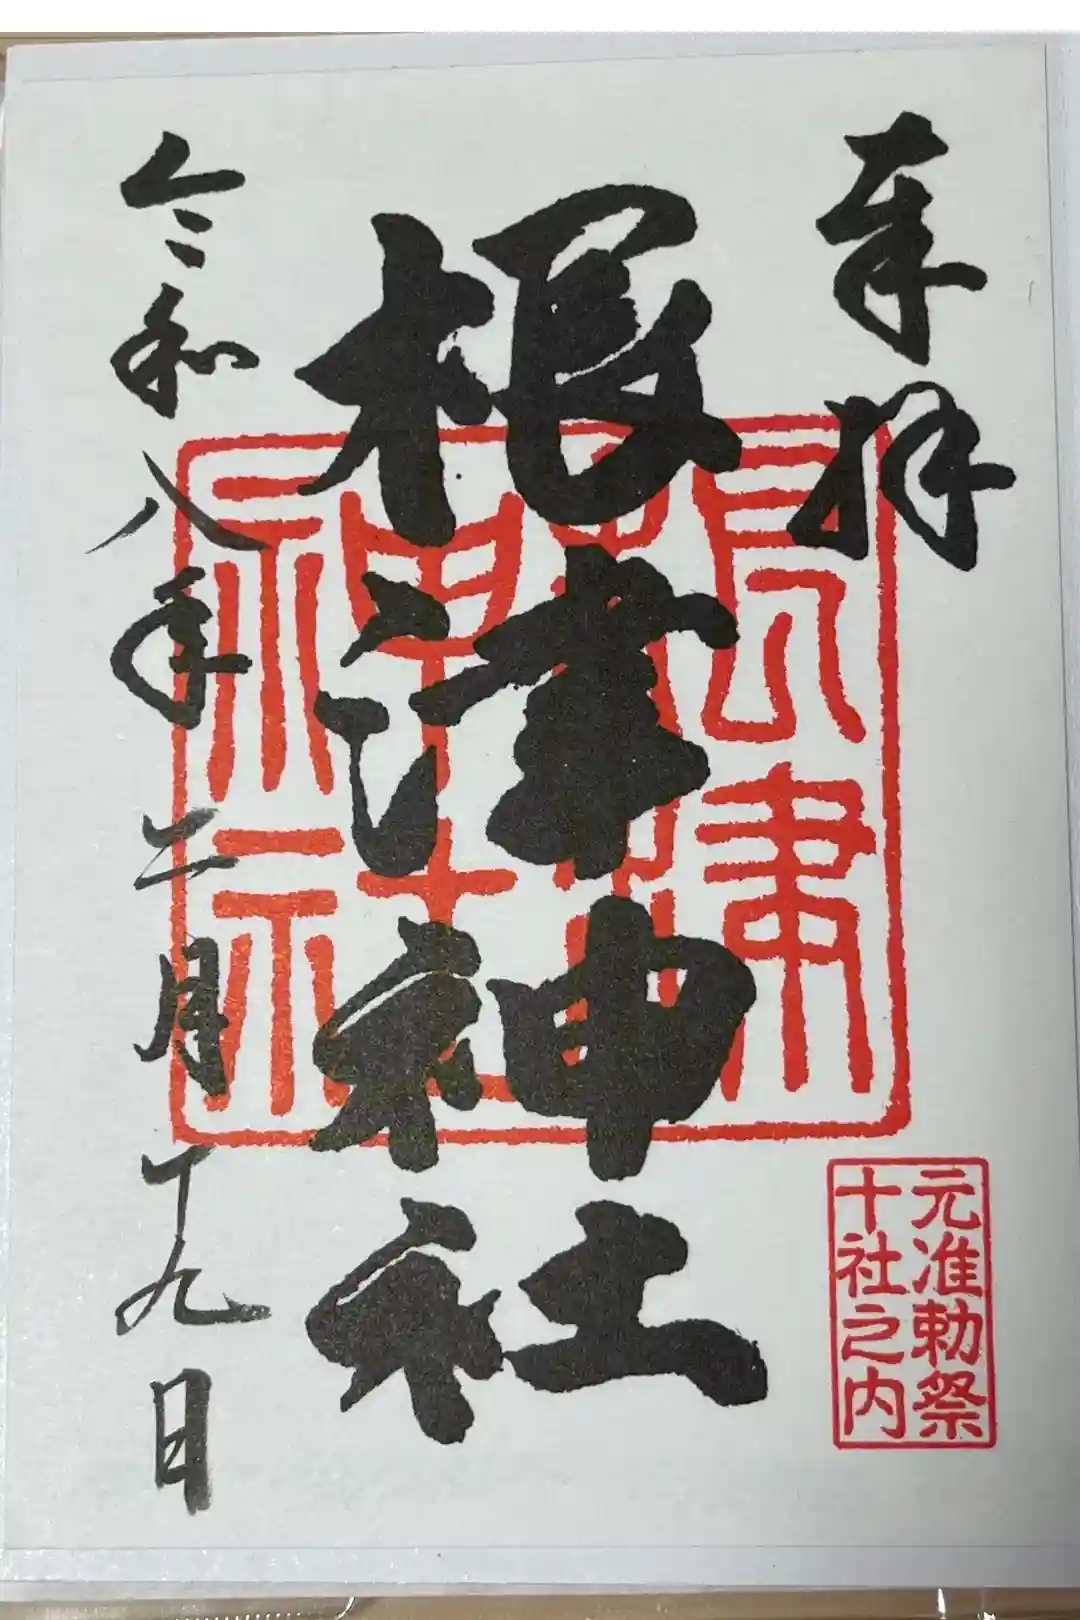 奉拝
元准勅祭
十社之内
根津神社
根津
神社
令和八年二月十九日